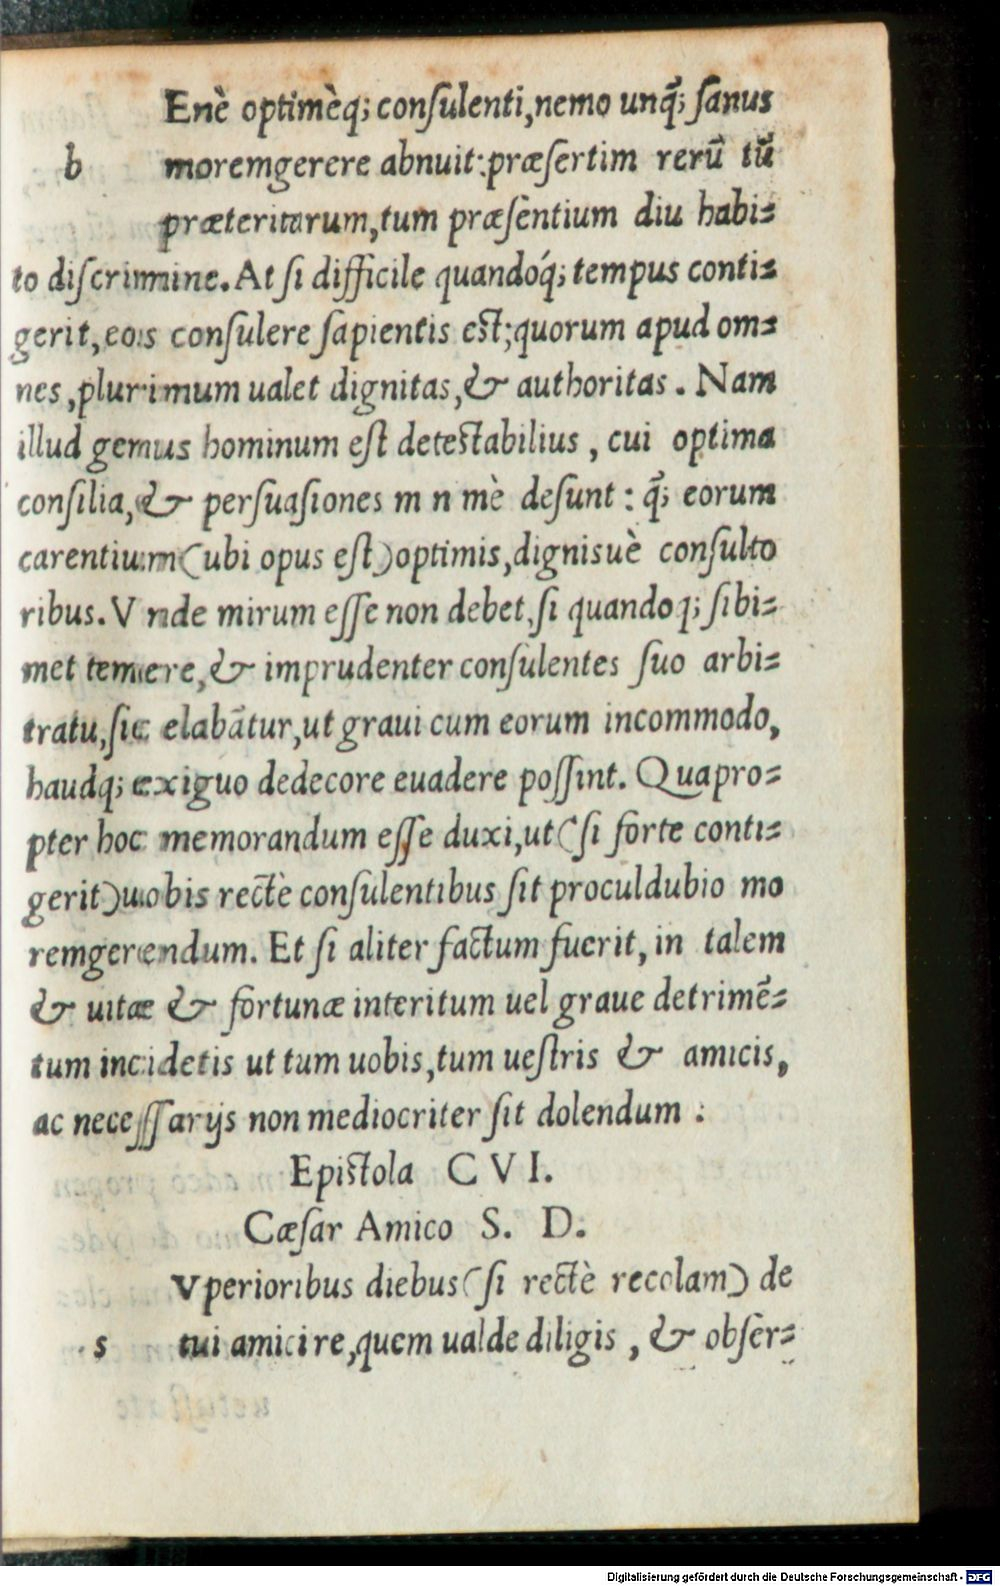 Enè optimèq; conſulenti, nemo unq̃; ſanus
b moremgerere abnuit: præſertim rerũ tũ
præteritarum, tum præſentium diu habi⸗
to diſcrimine. At ſi difficile quandoq́; tempus conti⸗
gerit, eos conſulere ſapientis eſt; quorum apud om⸗
nes, plurimum ualet dignitas, & authoritas. Nam
illud genus hominum eſt deteſtabilius, cui optima
conſilia, & perſuaſiones m n mè deſunt: q̃; eorum
carentium (ubi opus eſt) optimis, dignisuè conſulto
ribus. V nde mirum eſſe non debet, ſi quandoq; ſibi⸗
met temere, & imprudenter conſulentes ſuo arbi⸗
tratu, ſic elabãtur, ut graui cum eorum incommodo,
haudq; exiguo dedecore euadere poſſint. Quapro⸗
pter hoc memorandum eſſe duxi, ut (ſi forte conti⸗
gerit) uobis rectè conſulentibus ſit proculdubio mo
remgerendum. Et ſi aliter factum fuerit, in talem
& uitæ & fortunæ interitum uel graue detrimẽ⸗
tum incidetis ut tum uobis, tum ueſtris & amicis,
ac neceſſarijs non mediocriter ſit dolendum.
Epiſtola C V I.
Cæſar Amico S. D.
Vperioribus diebus (ſi rectè recolam) de
s tui amici re, quem ualde diligis, & obſer⸗
Digitalisierung gefördert durch die Deutsche Forschungsgemeinschaft - DFG